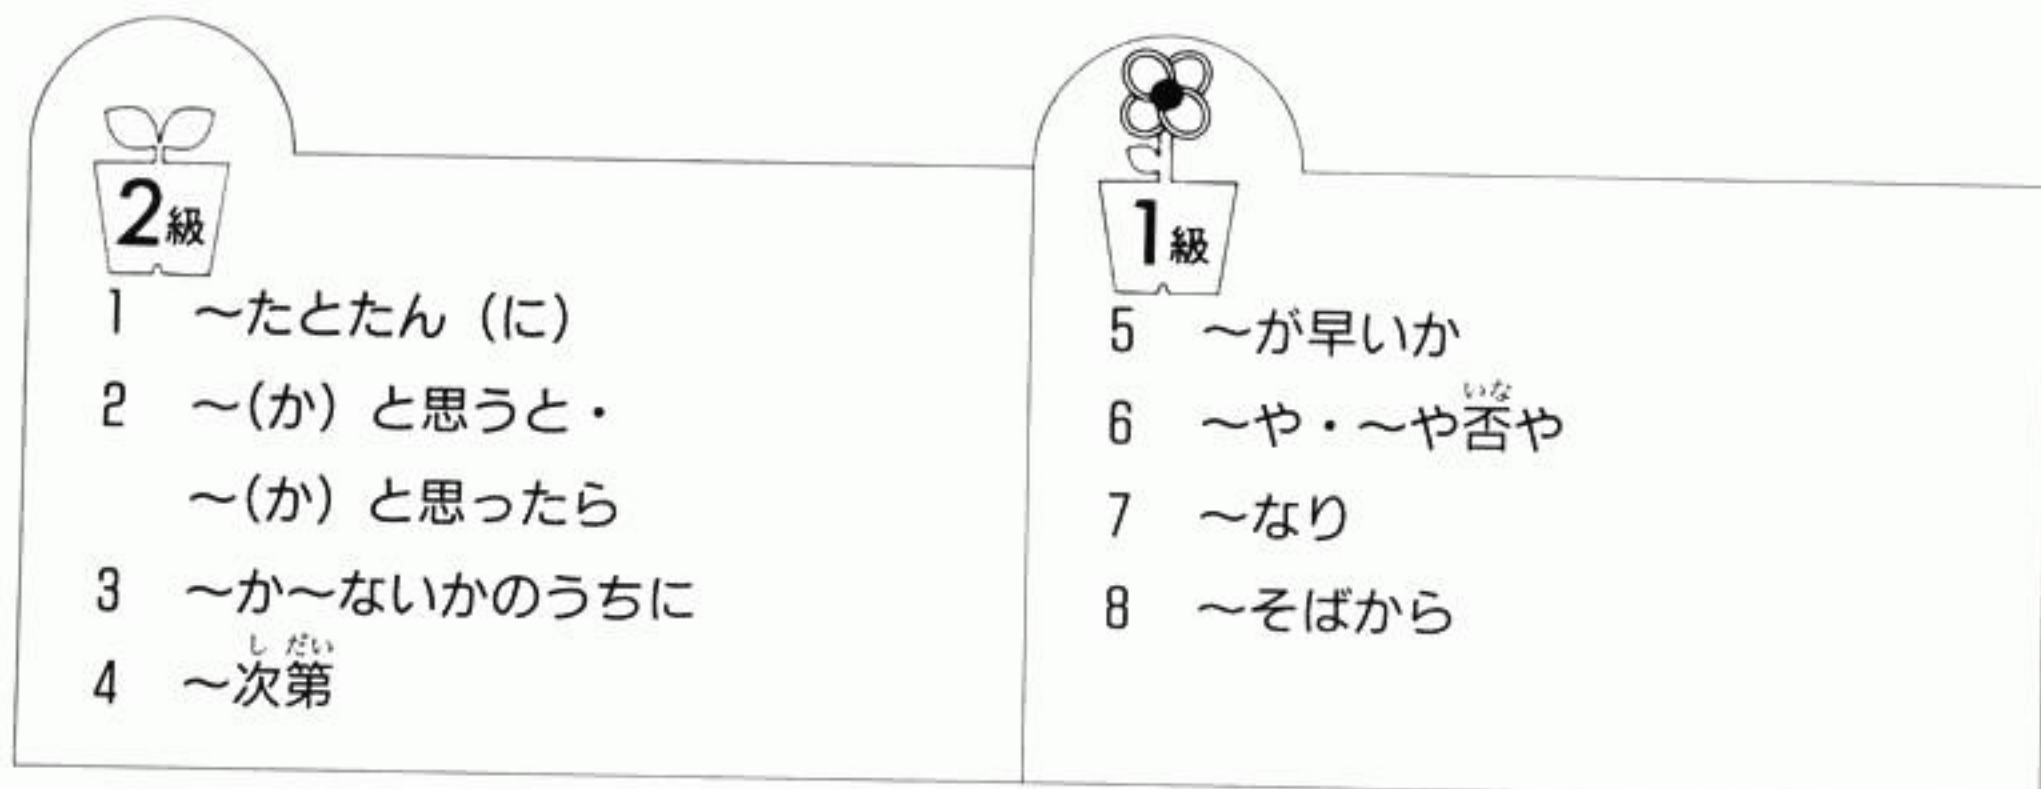 2級
1 ～たとたん（に）
2 ～（か）と思うと・
～（か）と思ったら
3 ～か～ないかのうちに
しだい
4 ～次第
1級
5 ～が早いか
いな
6 ～や・～や否や
7 ～なり
8 ～そばから